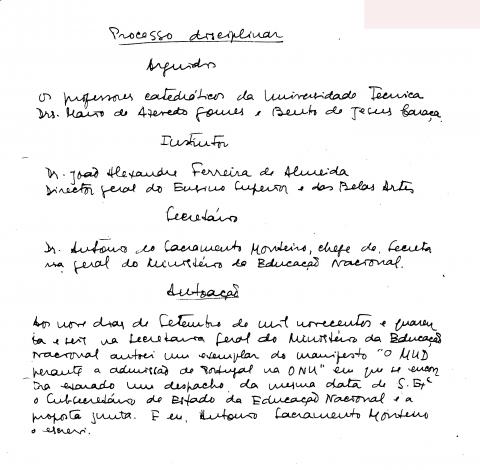 Processo disciplinar
Arguidos
Os professores catedráticos da Universidade Técnica
Drs. Mário de Azevedo Gomes e Bento de Jesus Caraça
Instrutor
Dr. João Alexandre Ferreira de Almeida
Director geral do Ensino Superior e das Belas Artes
Secretário
Dr. António do Sacramento Monteiro, chefe de Secreta
ria geral do Ministério da Educação Nacional.
Autuação
Aos nove dias de Setembro de mil novecentos e quaren
ta e seis na Secretaria Geral do Ministério da Educação
Nacional autuei um exemplar do manifesto "O MUD
perante a admissão de Portugal na ONU" em que se encon
tra exarado um despacho, da mesma data de S. Exª
o Subsecretário de Estado da Educação Nacional e a
proposta junta. E eu, António Sacramento Monteiro
o escrevi.